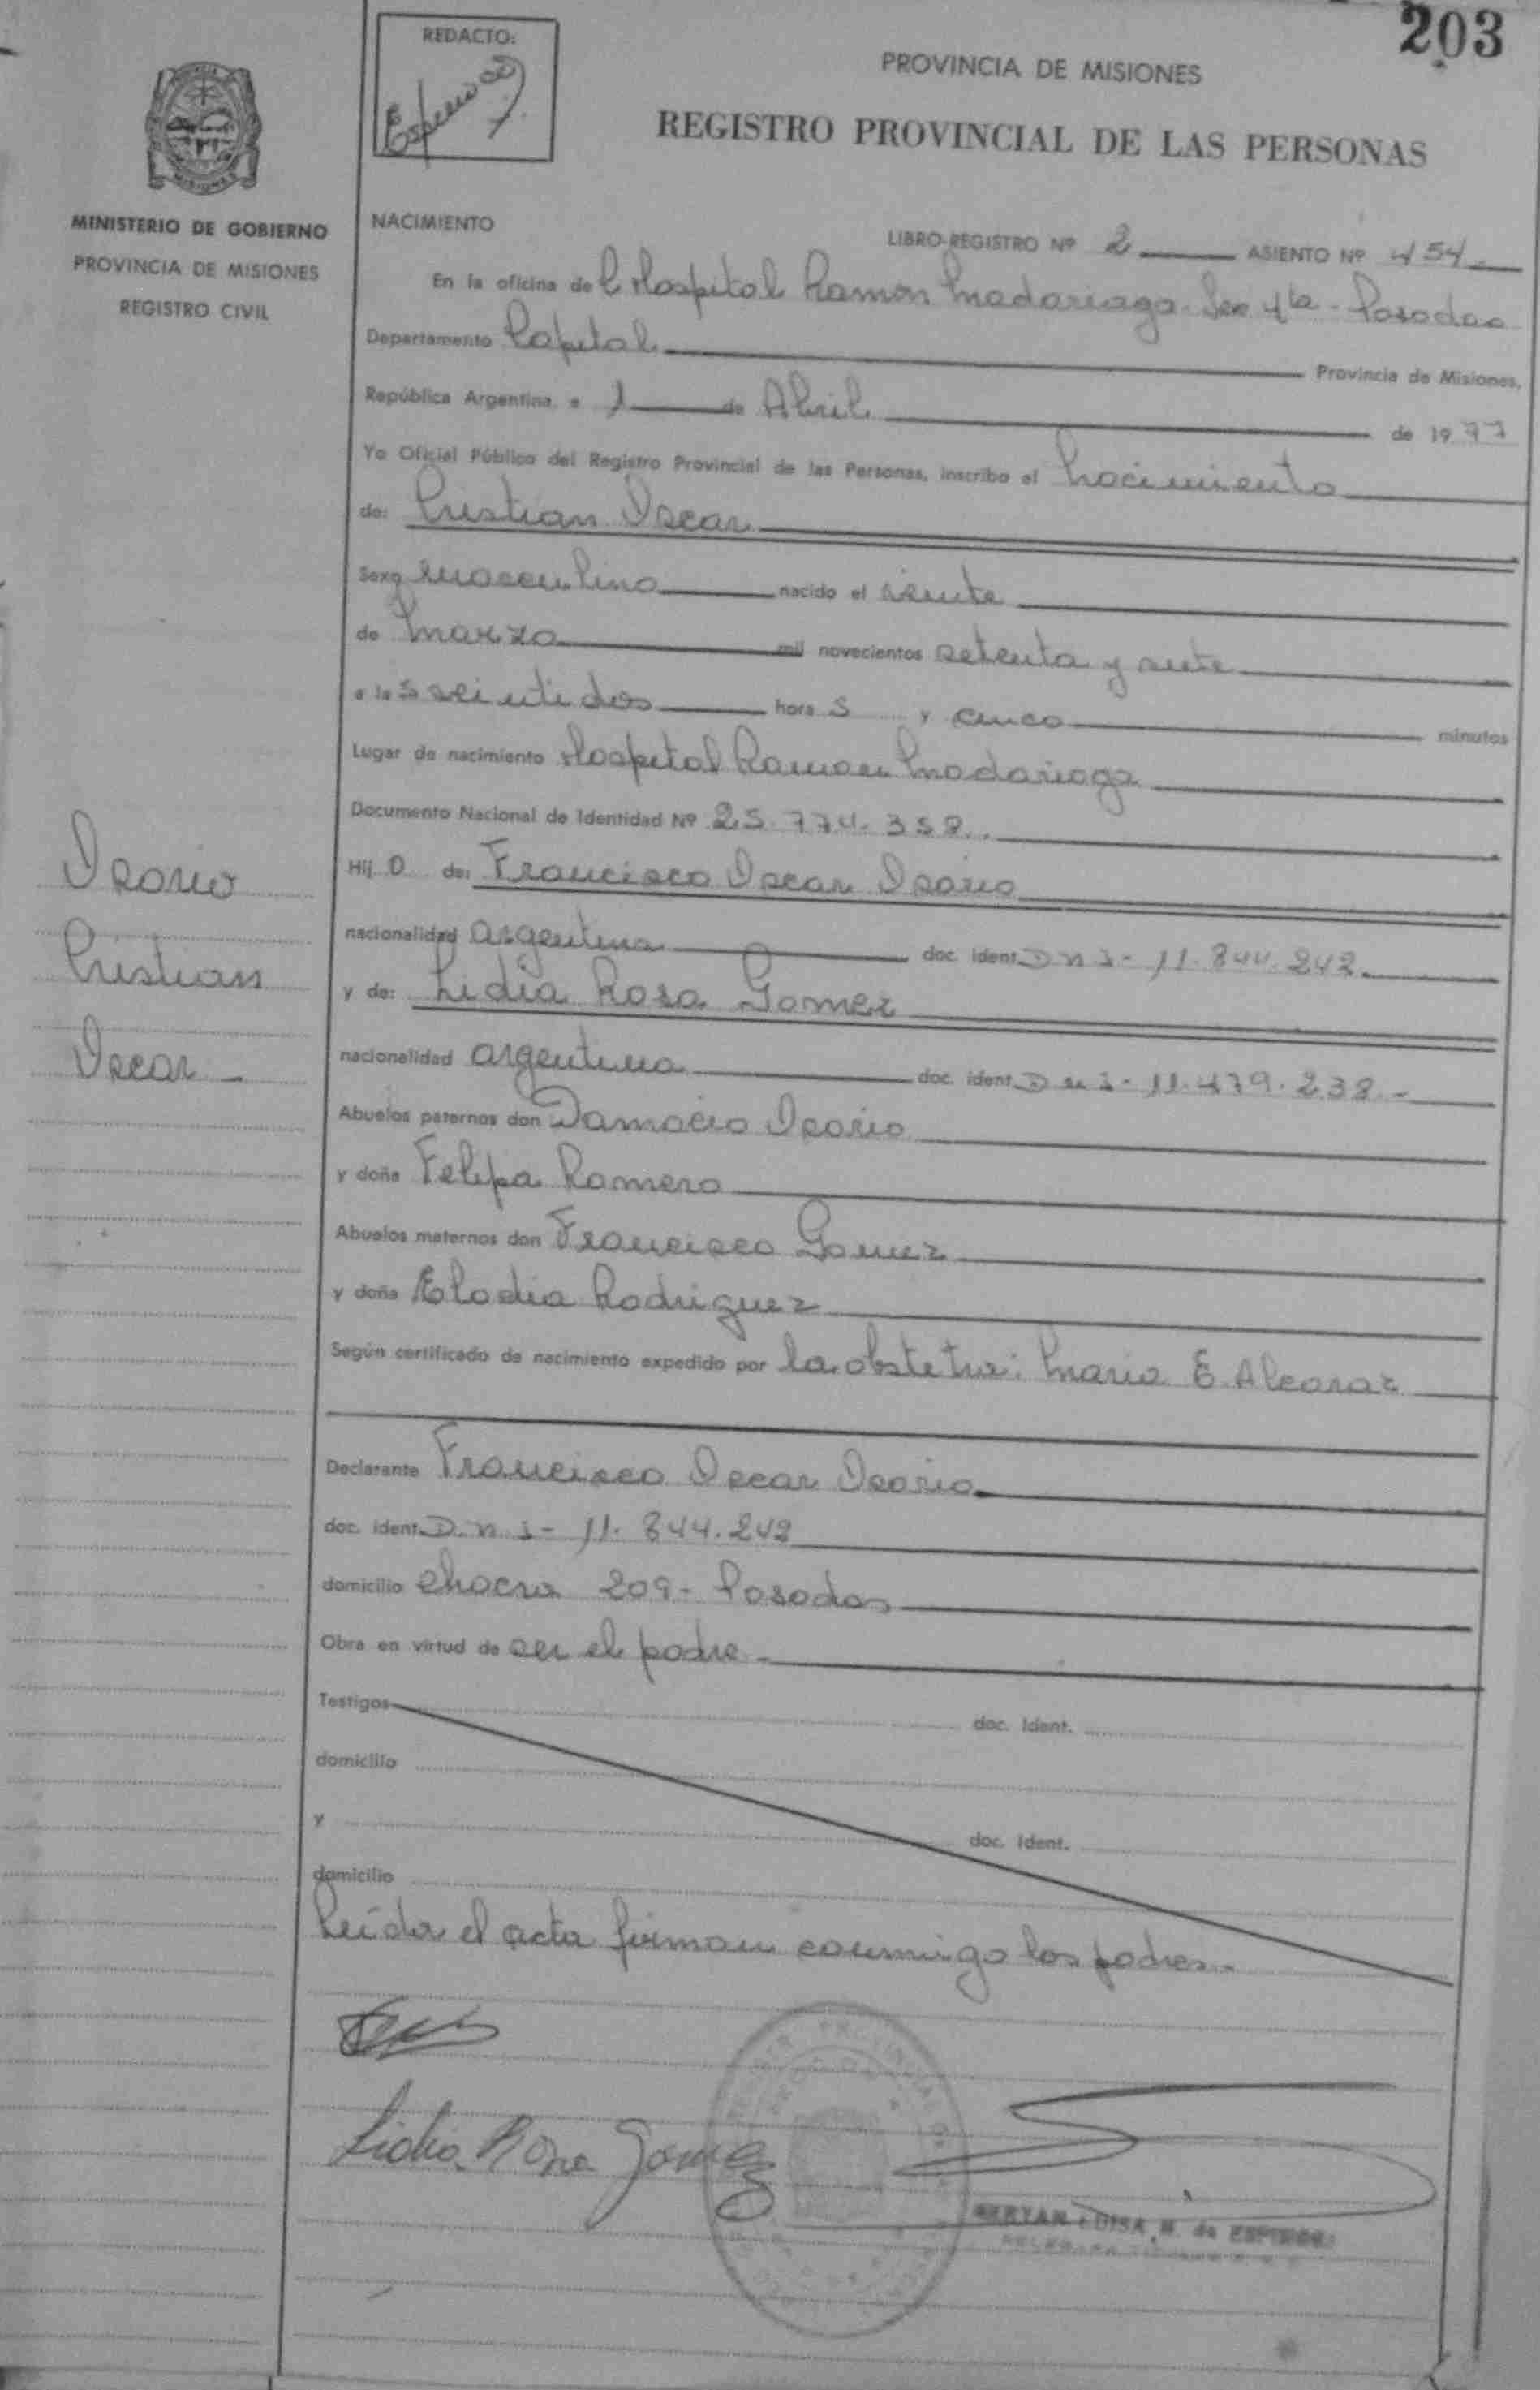 203
REDACTO:
PROVINCIA DE MISIONES
REGISTRO PROVINCIAL DE LAS PERSONAS
MISIONES
MINISTERIO DE GOBIERNO
PROVINCIA DE MISIONES
REGISTRO CIVIL
NACIMIENTO
LIBRO-REGISTRO Nº 2 ASIENTO Nº 454
En la oficina del Hospital Ramon Madariaga Sec 4ta - Posadas
Departamento Capital Provincia de Misiones,
República Argentina, a 1 de Abril de 1977
Yo Oficial Público del Registro Provincial de las Personas, inscribo el Nacimiento
de: Cristian Oscar
Sexo masculino nacido el veinte
de Marzo mil novecientos setenta y siete
a las veintidos horas y cinco minutos
Lugar de nacimiento Hospital Ramon Madariaga
Documento Nacional de Identidad Nº 25.774.358
Hijo de: Francisco Oscar Osorio
nacionalidad argentina doc. ident. Dni - 11.844.242
y de: Lidia Rosa Gomez
nacionalidad argentina doc. ident. Dni - 11.479.238 -
Abuelos paternos don Damacio Osorio
y doña Felipa Romero
Abuelos maternos don Francisco Gomez
y doña Elodia Rodriguez
Según certificado de nacimiento expedido por la obstetra: Maria E Alcaraz
Declarante Francisco Oscar Osorio
doc. ident. D.n.i - 11.844.242
domicilio Chacra 209 - Posadas
Obra en virtud de ser el padre -
Testigos doc. Ident.
domicilio
y doc. Ident.
domicilio
Leída el acta firman conmigo los padres -
Lidia Rosa Gomez
LUISA N. de
Osorio
Cristian
Oscar -